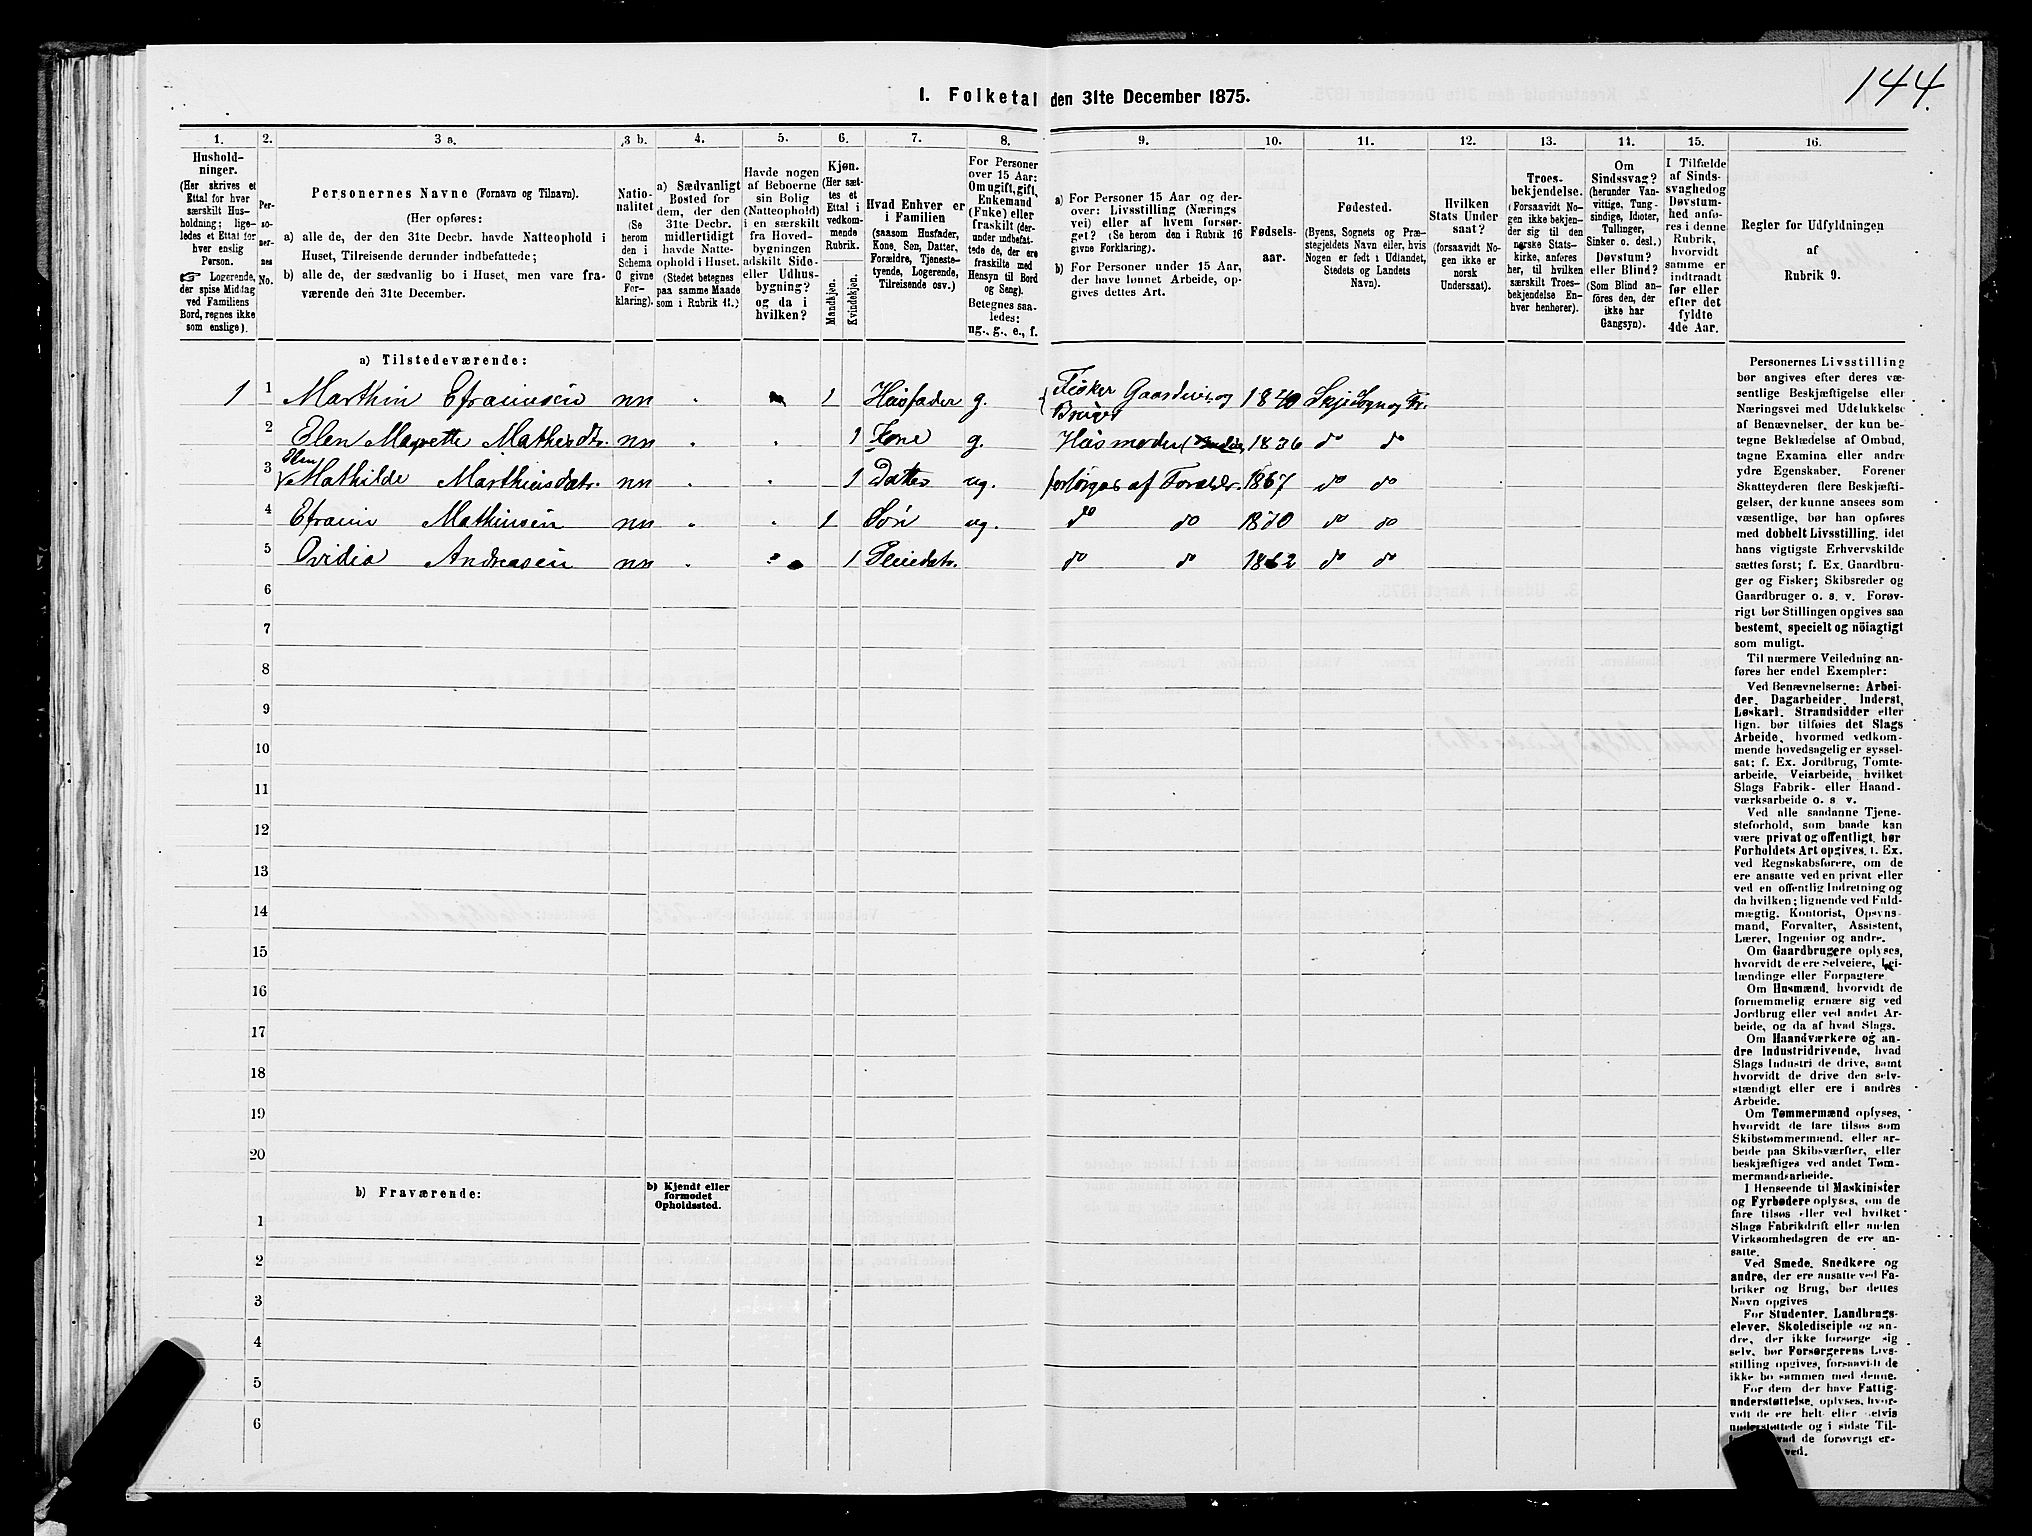 144.
1. Folketal den 31te December 1875.
1.
Hushold-
ninger.
(Her skrives et
Ettal for hver
særskilt Hus-
holdning; lige-
ledes et Ettal for
hver enslig
Person.
☞ Logerende,
der spise Middag
ved Familiens
Bord, regnes ikke
som enslige).
2.
Per-
so-
ner-
nes
No.
3 a.
Personernes Navne (Fornavn og Tilnavn).
(Her opføres:
a) alle de, der den 31te Decbr. havde Natteophold i
Huset, Tilreisende derunder indbefattede;
b) alle de, der sædvanlig bo i Huset, men vare fra-
værende den 31te December.
3 b.
Natio-
nalitet
(Se
herom
den i
Schema
C givne
For-
klaring).
4.
a) Sædvanligt
Bosted for
dem, der den
31te Decbr.
midlertidigt
havde Natte-
ophold i Huset.
(Stedet betegnes
paa samme Maade
som i Rubrik 11.)
5.
Havde nogen
af Beboerne
sin Bolig
(Natteophold)
i en særskilt
fra Hoved-
bygningen
adskilt Side-
eller Udhus-
bygning?
og da i
hvilken?
6.
Kjøn.
(Her sæt-
tes et
Ettal i
vedkom-
mende
Rubrik.
Mandkjøn.
Kvindekjøn.
7.
Hvad Enhver er
i Familien
(saasom Husfader,
Kone, Søn, Datter,
Forældre, Tjeneste-
tyende, Logerende,
Tilreisende osv.)
8.
For Personer
over 15 Aar:
Om ugift, gift,
Enkemand
(Enke) eller
fraskilt (der-
under indbefat-
tede de, der ere
fraskilte med
Hensyn til Bord
og Seng).
Betegnes saa-
ledes:
ug., g., e., f.
9.
a) For Personer 15 Aar og der-
over: Livsstilling (Nærings
vei) eller af hvem forsør-
get? (Se herom den i Rubrik 16
givne Forklaring).
b) For Personer under 15 Aar,
der have lønnet Arbeide, op-
gives dettes Art.
10.
Fødsels-
aar.
11.
Fødested.
(Byens, Sognets og Præ-
stegjeldets Navn eller, hvis
Nogen er født i Udlandet,
Stedets og Landets
Navn).
12.
Hvilken
Stats Under
saat?
(forsaavidt No-
gen ikke er
norsk
Undersaat).
13.
Troes-
bekjendelse.
(Forsaavidt No-
gen ikke bekjen-
der sig til den
norske Stats-
kirke, anføres
her, til hvilken
særskilt Troes-
bekjendelse En-
hver henhører).
14.
Om
Sindssvag?
(herunder Van-
vittige, Tung-
sindige, Idioter,
Tullinger,
Sinker o. desl.)
Døvstum?
eller Blind?
(Som Blind an-
føres den, der
ikke har
Gangsyn).
15.
I Tilfælde
af Sinds-
svaghed og
Døvstum-
hed anfø-
res i denne
Rubrik,
hvorvidt
samme er
indtraadt
før eller
efter det
fyldte
4de Aar.
16.
Regler for Udfyldningen
af
Rubrik 9.
a) Tilstedeværende:
1 1 Marthin Efraimsen nn 1 Husfader g. Fisker Gaardeier og Bruger 1840 Sogn og Pr.
2 Elen Magrette Mathesdtr. nn 1 Kone g. Husmoder 1836 do do
3 Elen Mathilde Marthinsdatr. nn 1 Datter ug. forsørges af Foreldr. 1867 do do
4 Efraim Mathinsen nn 1 Søn ug. do do 1870 do do
5 Ovidia Andreasen nn 1 Pleiedatr. do do 1862 do do
6
7
8
9
10
11
12
13
14
15
16
17
18
19
20
b) Fraværende:
b) Kjendt eller
formodet
Opholdssted.
1
2
3
4
5
6
Personernes Livsstilling
bør angives efter deres væ-
sentlige Beskjæftigelse eller
Næringsvei med Udelukkelse
af Benævnelser, der kun be-
tegne Beklædelse af Ombud,
tagne Examina eller andre
ydre Egenskaber. Forener
Skatteyderen flere Beskjæfti-
gelser, der kunne ansees som
væsentlige, bør han opføres
med dobbelt Livsstilling, idet
hans vigtigste Erhvervskilde
sættes først; f. Ex. Gaardbru-
ger og Fisker; Skibsreder og
Gaardbruger o. s. v. Forøv-
rigt bør Stillingen opgives saa
bestemt, specielt og nöiagtigt
som muligt.
Til nærmere Veiledning an-
føres her endel Exempler:
Ved Benævnelserne: Arbei-
der, Dagarbeider, Inderst,
Løskarl, Strandsidder eller
lign. bør tilføies det Slags
Arbeide, hvormed vedkom-
mende hovedsagelig er syssel-
sat; f. Ex. Jordbrug, Tomte-
arbeide, Veiarbeide, hvilket
Slags Fabrik- eller Haand-
værksarbeide o. s v.
Ved alle saadanne Tjene-
steforhold, som baade kan
være privat og offentligt, bør
Forholdets Art opgives, f. Ex.
ved Regnskabsførere, om de
ere ansatte ved en privat eller
ved en offentlig Indretning og
da hvilken; lignende ved Fuld-
mægtig, Kontorist, Opsyns-
mand, Forvalter, Assistent,
Lærer, Ingeniør og andre.
Om Gaardbrugere oplyses,
hvorvidt de ere Selveiere, Lei-
lændinge eller Forpagtere
Om Husmænd, hvorvidt de
fornemmelig ernære sig ved
Jordbrug eller ved andet Ar-
beide, og da af hvad Slags.
Om Haandværkere og an-
dre Industridrivende, hvad
Slags Industri de drive, samt
hvorvidt de drive den selv-
stændigt eller ere i andres
Arbeide.
Om Tømmermænd oplyses,
hvorvidt de fare tilsøs som
Skibstømmermænd, eller ar-
beide paa Skibsværfter, eller
beskjæftiges ved andet Tøm-
mermandsarbeide.
I Henseende til Maskinister
og Fyrbødere oplyses, om de
fare tilsøs eller ved hvilket
Slags Fabrikdrift eller anden
Virksomhedsgren de ere an-
satte.
Ved Smede, Snedkere og
andre, der ere ansatte ved Fa-
briker og Brug, bør dettes
Navn opgives
For Studenter, Landbrugs-
elever, Skoledisciple og an-
dre, der ikke forsørge sig
selv, bør Forsørgerens Livs-
stilling opgives, forsaavidt de
ikke bo sammen med denne.
For dem der have Fattig-
understøttelse, oplyses, hvor-
vidt de ere helt eller delvis
understøttede og i sidste Til-
de forøvrigt er-